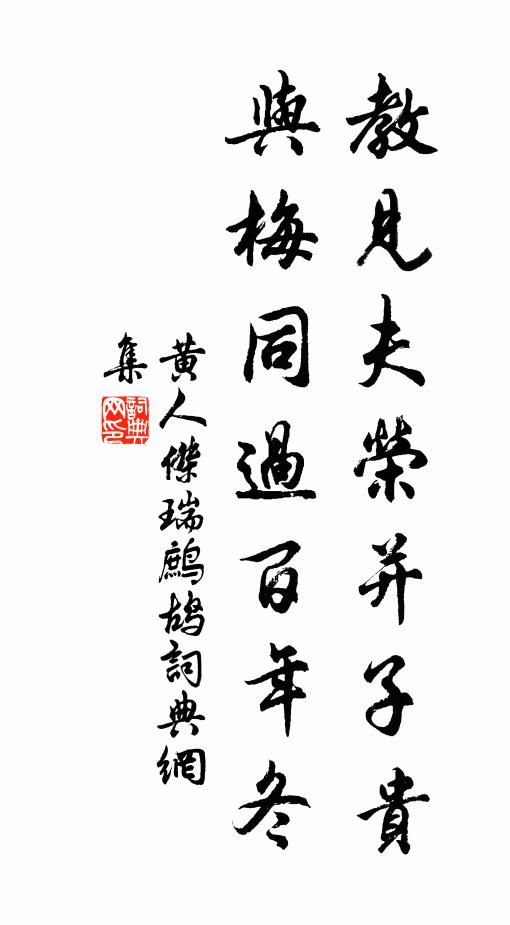 教見夫榮并子貴
與梅同過百年冬
黄人傑瑞鷓鴣詞典網
集
詞典網印